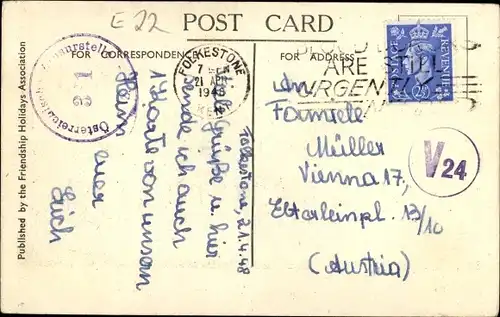 E 22
POST CARD
FOR CORRESPONDENCE
FOR ADDRESS
Published by the Friendship Holidays Association
FOLKESTONE
7 PM
21 APR
1948
KENT
BLOOD
ARE STILL
URGENTLY
POSTAGE REVENUE
2½D
Österreichische Zensurstelle
V24
Folkestone, 21.4.48
Viele Grüße u. hier
sende ich auch
1 Karte von unserm
Heim euer
Erich
An
Familie
Müller
Vienna 17,
Elterleinpl. 13/10
(Austria)